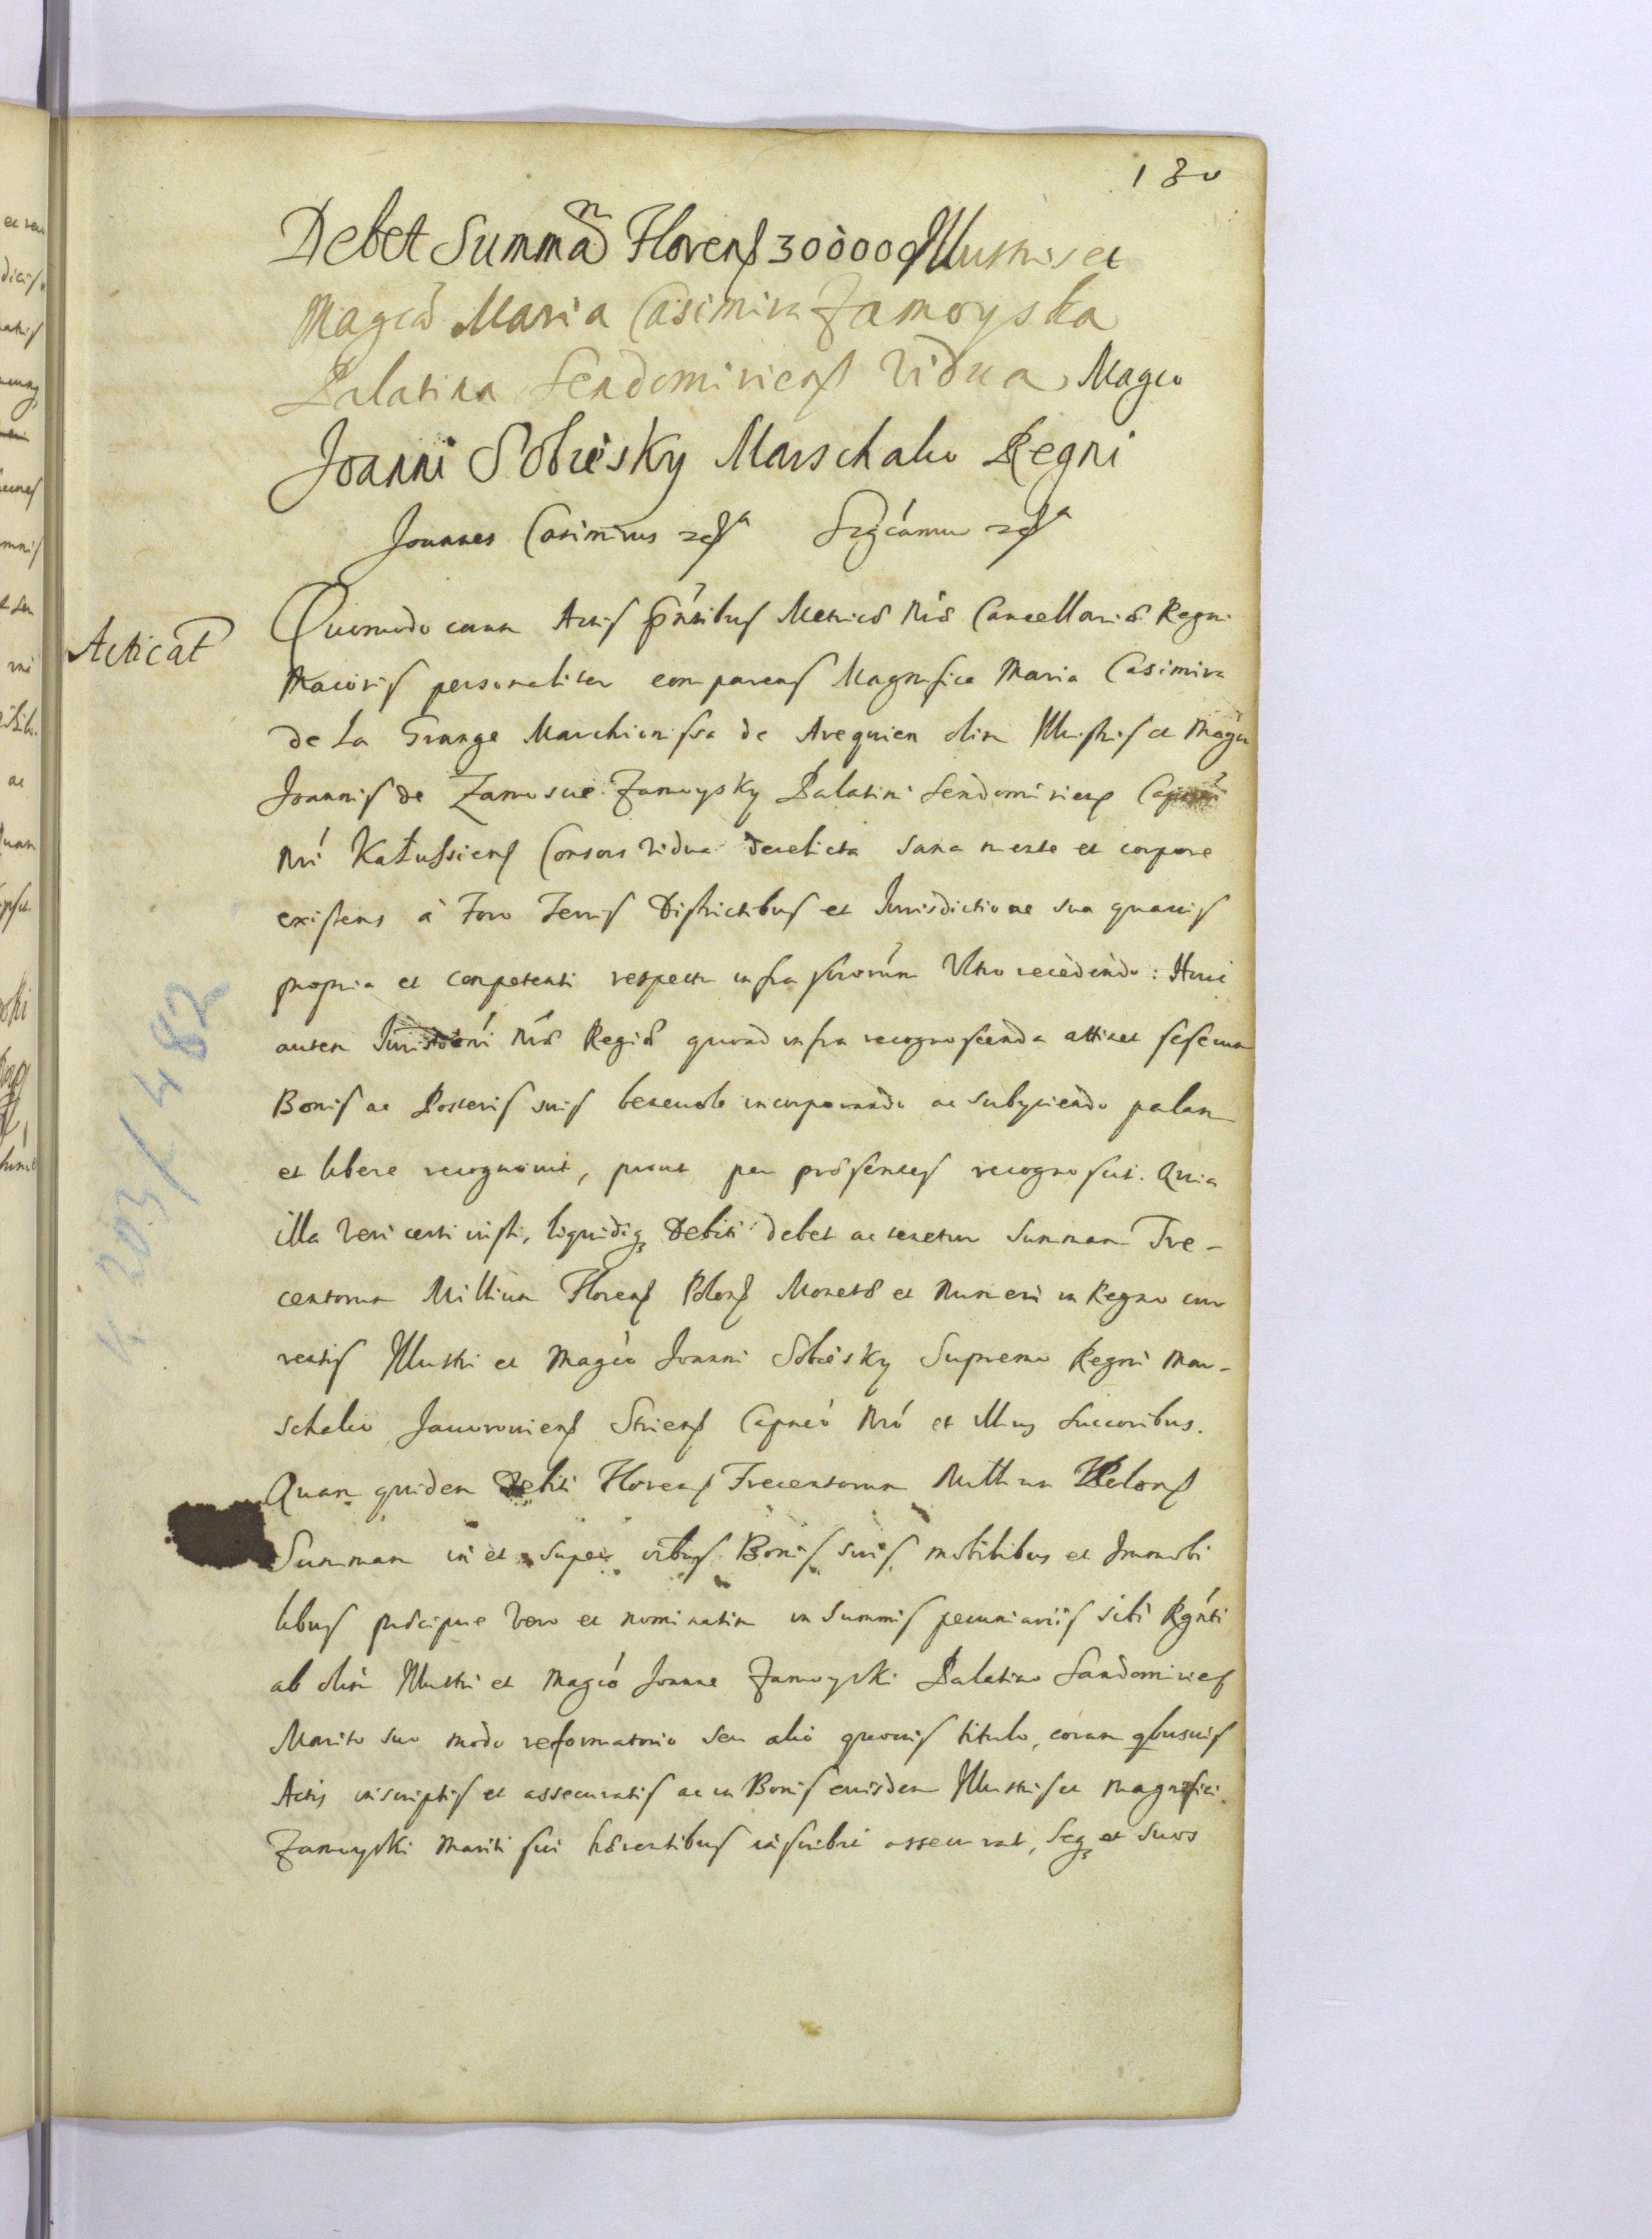 180
Debet Summam Florens 300000 Illustris et
Magca Maria Casimira Zamoyska
Palatina Sendomiriens Vidua Magco
Joanni Sobiesky Marschalco Regni
Joannes Casimirus etc Sigcamus etc
Acticat
Quomodo coram Actis pntibus Metricæ Nræ Cancellariæ Regni
Maioris personaliter comparens Magnifica Maria Casimira
de La Grange Marchionissa de Arequien olim Illustris et Magci
Joannis de Zamoscie Zamoysky Palatini Sendomiriens
Nri Kałussiens Consors Vidua derelicta sana mente et corpore
existens à Foro Terris Districtibus et Jurisdictione sua quauis
propria et competenti respectu infra scrorum Vltro recedendo: Huic
autem Nræ Regiæ quoad infra recognoscenda attinet sese cum
Bonis ac Posteris suis beneuole incorporando ac subyciendo palam
et libere recognouit, prout per præsentes recognoscit. Quia
illa veri certi iusti, liquidiq Debiti debet ac tenetur Summam Tre-
centorum Millium Florens Polons Monetæ et Numeri in Regno cur
rentis Illustri et Magco Joanni Sobiesky Supremo Regni Mar-
schalco Jauoroviens Striens Capneo Nro et illius Succoribus.
Quam quidem Debiti Florens Trecentorum Millium Polons
Summam in et super oibus Bonis suis mobilibus et Immobi
libus præcipue vero et nominatim in Summis pecuniariis sibi Rgnti
ab olim Illustri et Magco Joanne Zamoyski Palatino Sandomiries
Marito suo modo reformatorio seu alio quouis titulo, coram qbusuis
Actis inscriptis et assecuratis ac in Bonis eiusdem Illustris et Magnifici
Zamoyski Mariti sui hærentibus inscribit assecurat, Seq et suos
K 203/482